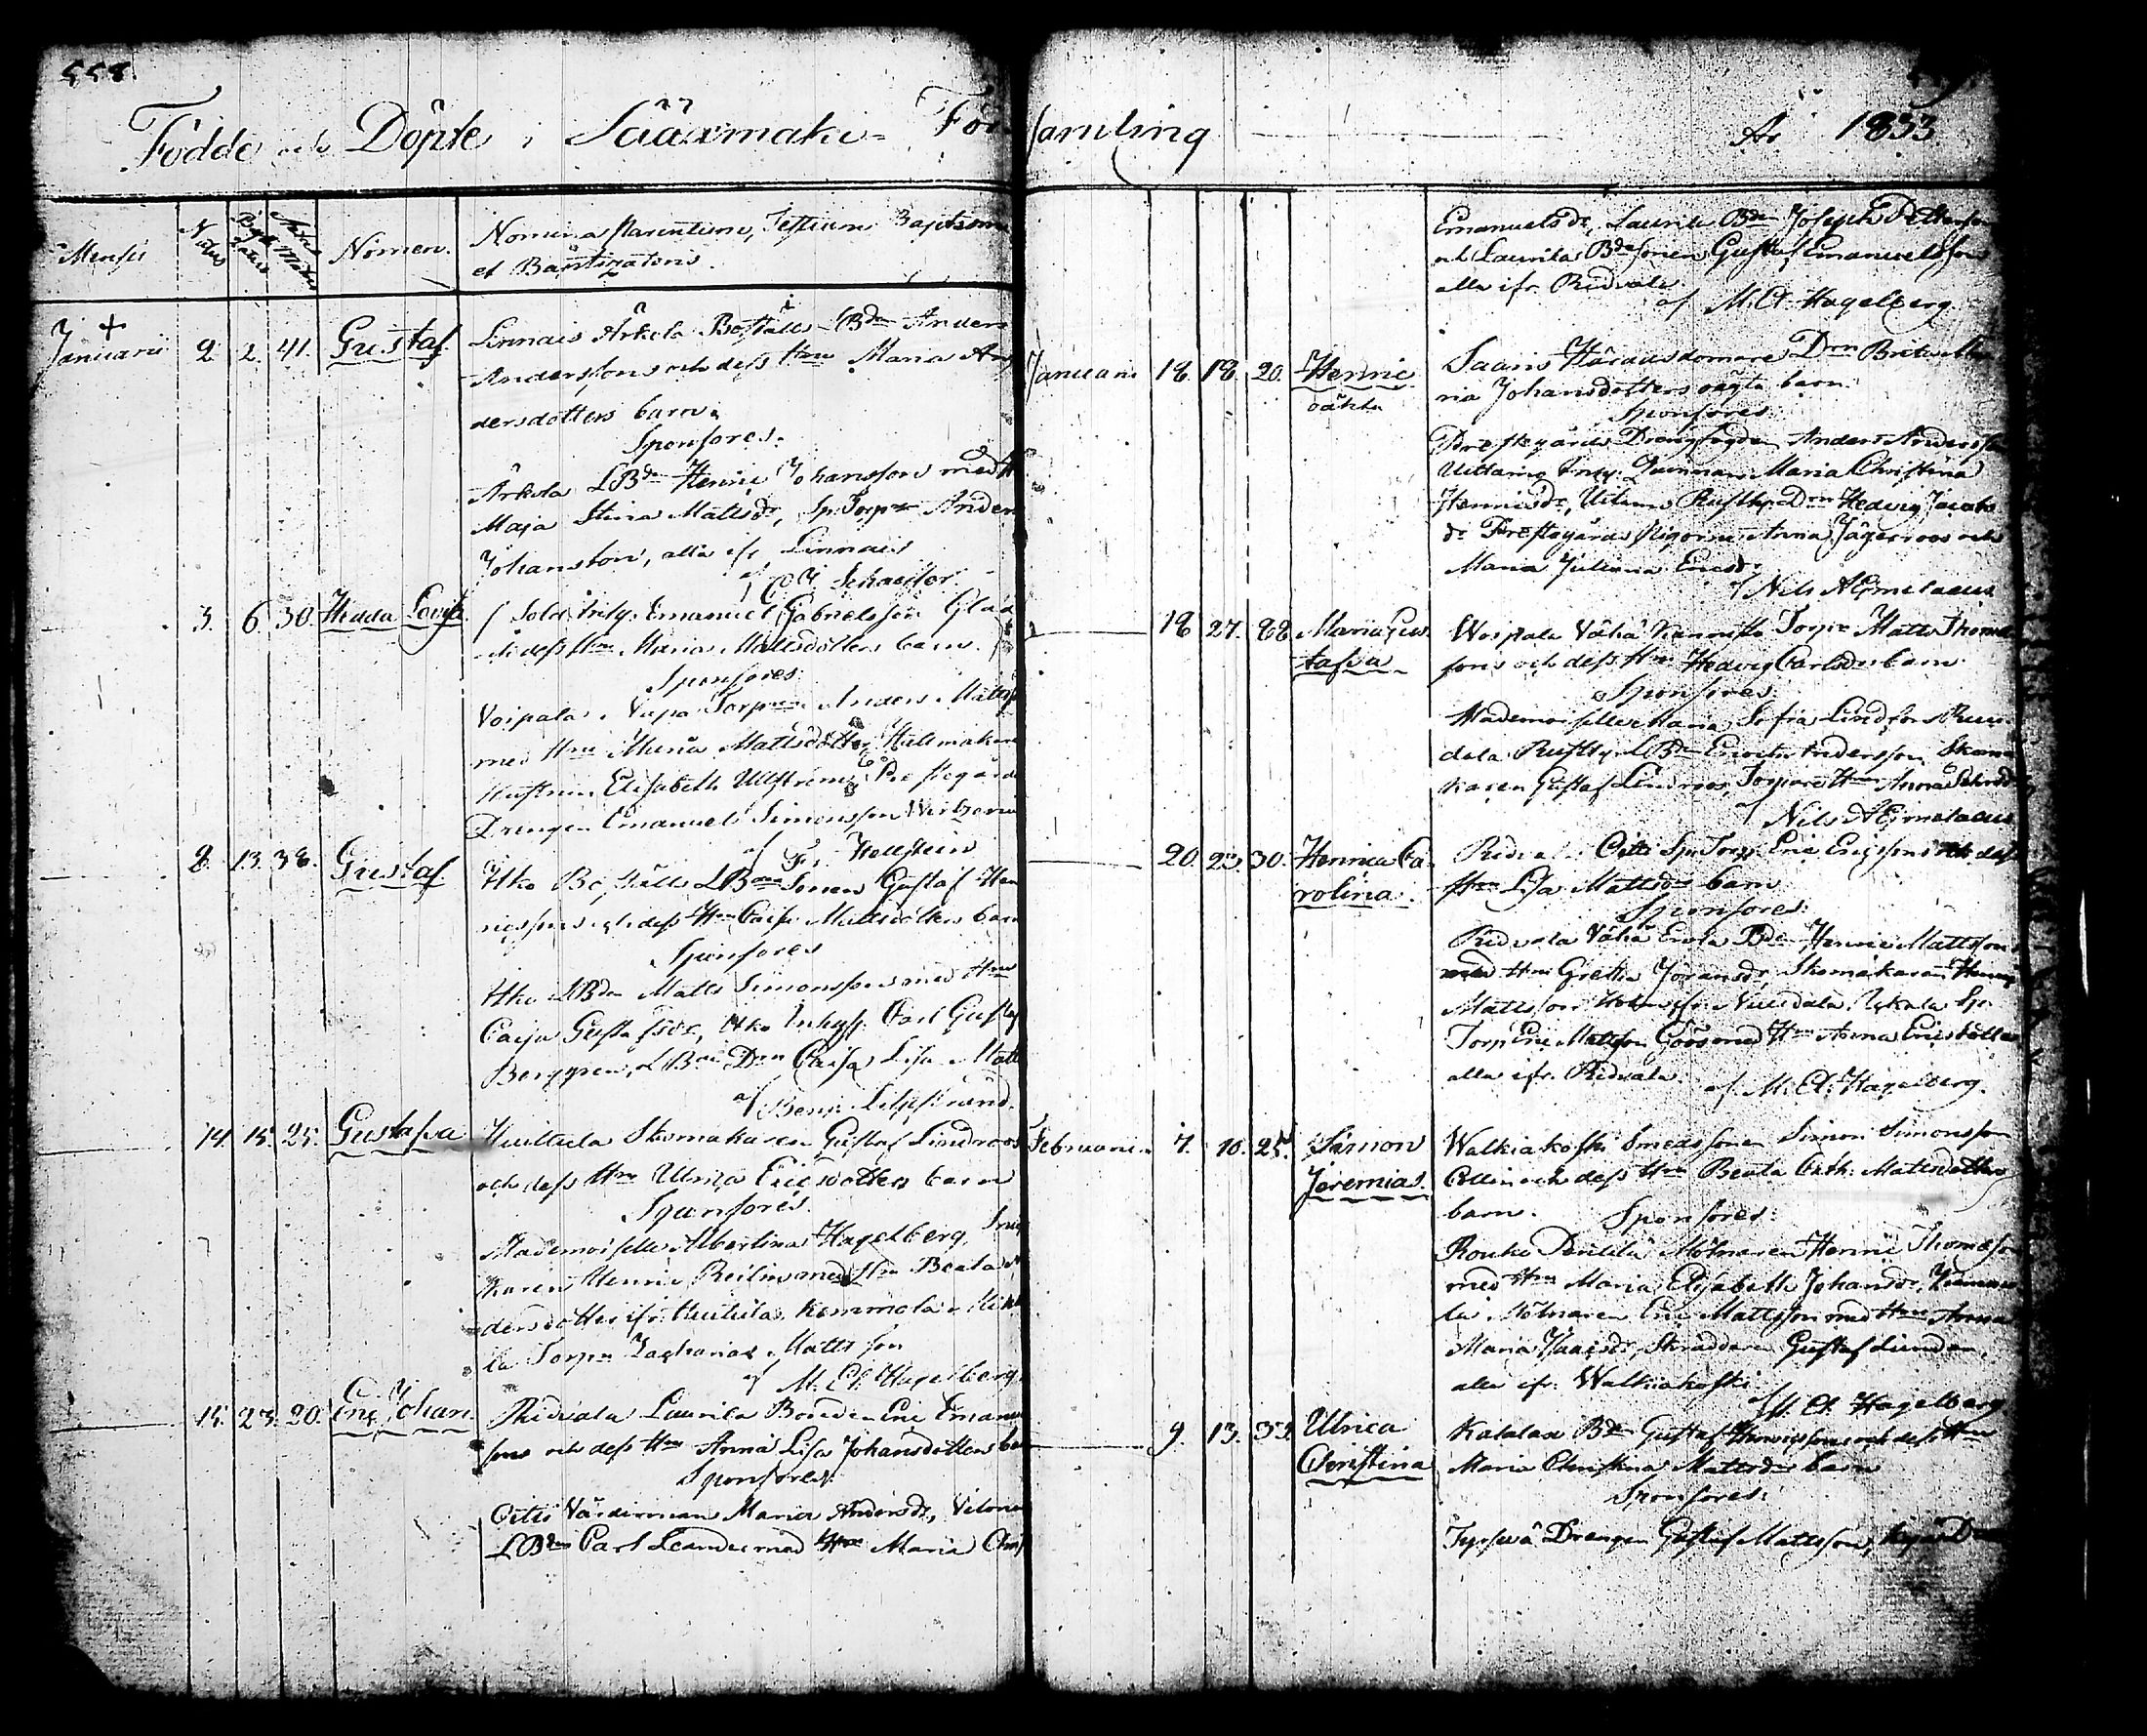 558.
Födde och Döpte i Sääxmäki Församling År 1833.
Mensis Natus Baptizatus Aetas Matris Nomen. Nomina Parentum, Testium Baptismi
et Baptizatoris.
Januarii 2. 2. 41. Gustaf. Linnais Arkola Boställs Bdn Anders
Anderssons och dess Hru Maria An
dersdotters barn.
Sponsores.
Arkola LBdn Henric Johansson med H
Maja Stina Mattsdr, Sp. Torpn Anders
Johansson, alla ifr Linnais
af Schaefer.
3. 6. 30. Hedda Lovisa. Sold. Inhg. Emanuel Gabrielsson Glad
och dess Hru Maria Mattsdotters barn.
Sponsores.
Voipala Torpn Anders Matts
med Hru Maria Mattsdotter, Hattmakare
Hustrun Elisabeth Ullström, Prestegårds
Drengen Emanuel Simonsson
af Fr. Hellstein
8. 13. 38. Gustaf Uko Boställs LBdn Sonen Gustaf Hen
ricssons och dess Hru Caisa Mattsdotters barn
Sponsores
Uko LBdn Matts Simonsson med Hru
Caisa Gustafsdr, Uko Inhys. Carl Gustaf
Berggren, LBdn Drn Caisa Lisa Matts
af Benj. Liljestrand.
14. 15. 25. Gustafva Huittula Skomakaren Gustaf Lindroos
och dess Hru Ulrica Ericsdotters barn
Sponsores.
Mademoiselle Albertina Hagelberg, Snic
karen Henric Reilin med Hru Beata An
dersdotter ifr. Huittula, Kemmola
la Torpn Zacharias Mattsson
af M. El. Hagelberg.
15. 23. 20. Eric Johan. Ridvala Laurila Bonden Eric Emanu
sons och dess Hru Anna Lisa Johansdotters barn
Sponsores.
Ottis Värdinnan Maria Andersdr,
LBdn Carl Leander med Hru Maria Chris
Emanuelsdr, Laurila Bdn Joseph Pettersson
och Laurila Bdsonen Gustaf Emanuelsson
alla ifr. Ridvala
af M. El. Hagelberg
Januarii 18. 18. 20. Henric Saaris Häradsdomare Drn Brita Ma
oäkta ria Johansdotters oägta barn.
Sponsores.
Prestegårds Drengfogden Anders Andersson
Uittamo Inhg. Quinnan Maria Christina
Henricsdr, Rusth. Drn Hedvig Jacobs
dr Prestegårds Pigorna Anna Jägerroos och
Maria Juliana Ericsdr.
af Nils Aejmelaeus
18. 27. 28. Maria Gus Voipala Vähä Kannisto Torpn Matts Thomas
tafva sons och dess Hru Hedvig Carlsdrs barn
Sponsores.
Mademoiselle Maria Sofia Lindfors,
dala Rusth. LBdn Eric Andersson, Skoma
karen Gustaf Lindroos, Torpare Hru Anna
af Nils Aejmelaeus
20. 23. 30. Henrica Ca Ridvala Ottis Sp. Torp. Eric Ericssons och dess
rolina. Hru Lisa Mattsdrs barn
Sponsores.
Ridvala Vähä Erola Bdn Henric Mattsson
med Hru Gretha Jöransdr, Skomakaren Henric
Mattsson Holm ifr. Nuudala, Sp.
Torp Eric Mattsson Göös med Hru Anna Ericsdotter
alla ifr. Ridvala. af M. El. Hagelberg.
Februarii 7. 10. 25. Simon Walkiakoski Smedssonen Simon Simonsson
Jeremias. Collin och dess Hru Beata Cath. Mattsdotters
barn. Sponsores.
Rouko Mölnaren Henric Thomasson
med Hru Maria Elisabeth Johansdr,
la Mölnaren Eric Mattsson med Hru Anna
Maria Isaacsdr, Skräddaren Gustaf Lindon,
alla ifr. Walkiakoski
af M. El. Hagelberg
9. 13. 33. Ulrica Kakalax Bdn Gustaf Henricssons och dess Hru
Christina Maria Christina Mattsdrs barn
Sponsores.
Drengen Gustaf Mattsson,